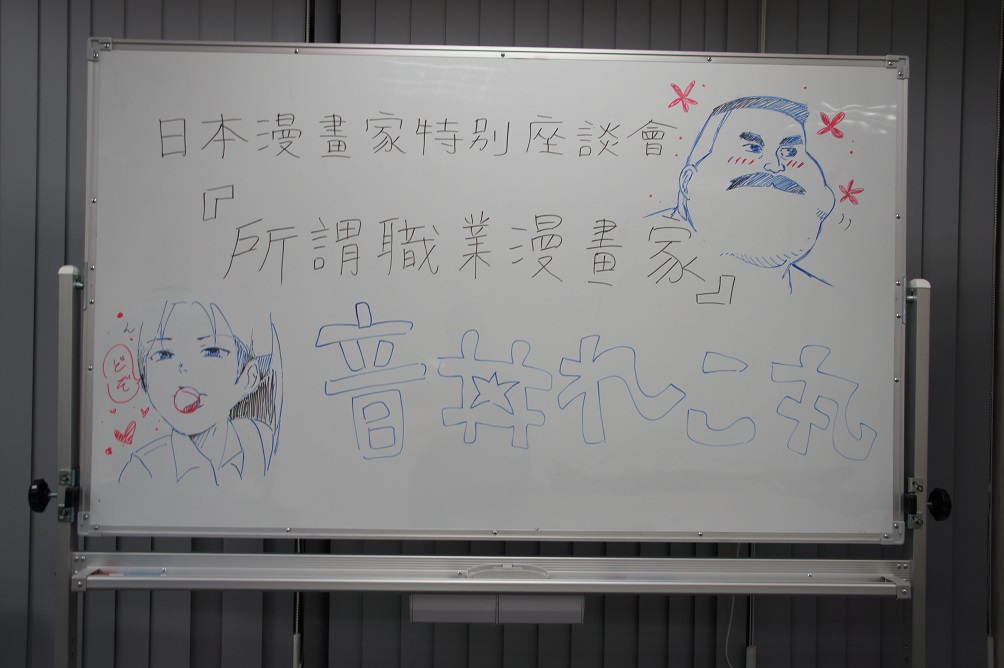 日本漫畫家特別座談會
『所謂職業漫畫家』
音井れこ丸
どぞ